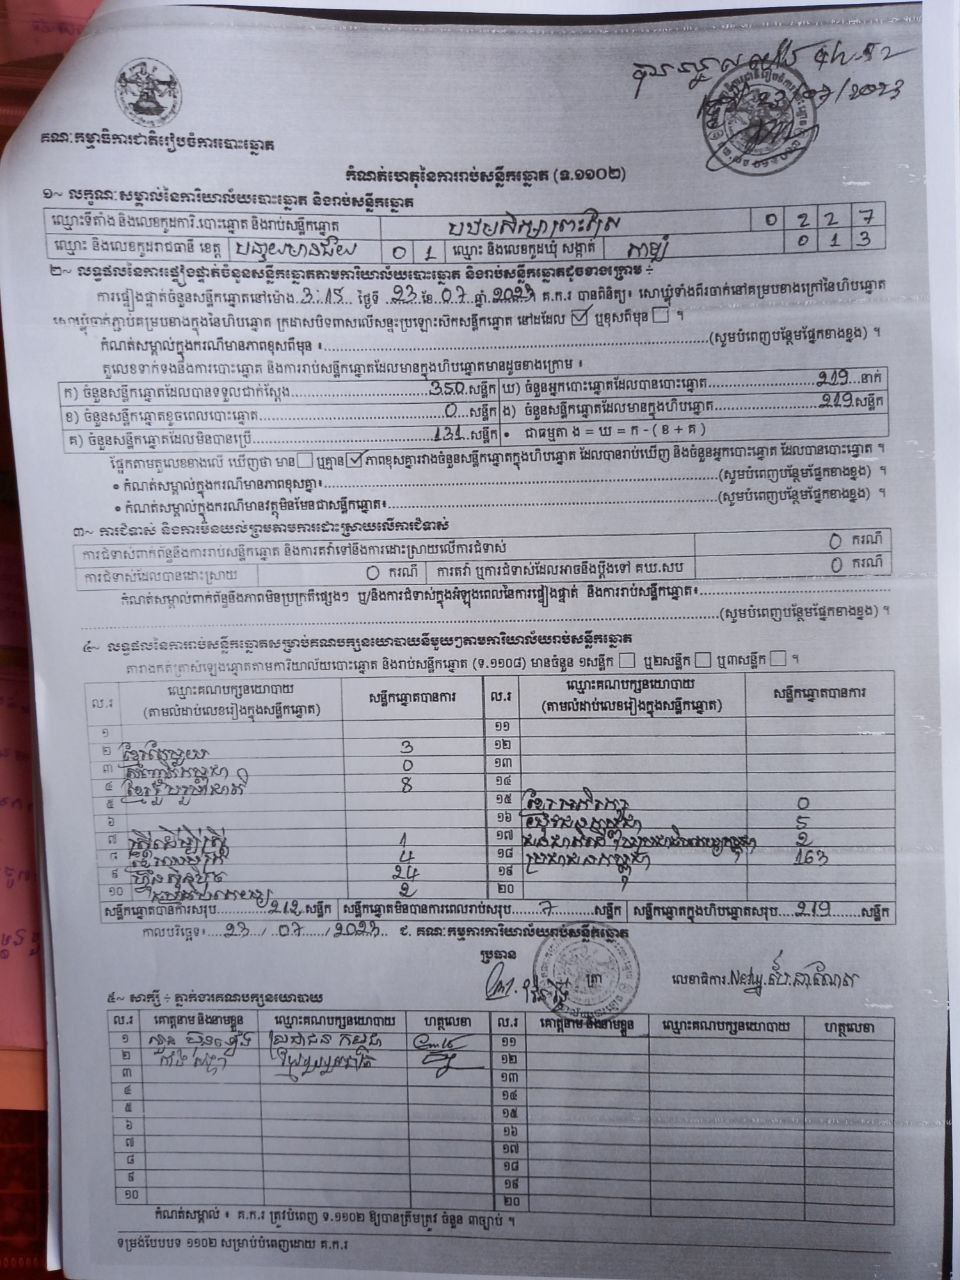 23/07/2023
គណៈកម្មាធិការជាតិរៀបចំការបោះឆ្នោត
កំណត់ហេតុនៃការរាប់សន្លឹកឆ្នោត (ទ.១១០២)
១~ លក្ខណៈសម្គាល់នៃការិយាល័យបោះឆ្នោត និងរាប់សន្លឹកឆ្នោត
ឈ្មោះទីតាំង និងលេខកូដការិ.បោះឆ្នោត និងរាប់សន្លឹកឆ្នោត 0 2 2 7
ឈ្មោះ និងលេខកូដរាជធានី ខេត្ត បន្ទាយមានជ័យ 0 1 ឈ្មោះ និងលេខកូដឃុំ សង្កាត់ 0 1 3
២~ លទ្ធផលនៃការផ្ទៀងផ្ទាត់ចំនួនសន្លឹកឆ្នោតតាមការិយាល័យបោះឆ្នោត និងរាប់សន្លឹកឆ្នោតដូចខាងក្រោម ÷
ការផ្ទៀងផ្ទាត់ចំនួនសន្លឹកឆ្នោតនៅម៉ោង 3:15 ថ្ងៃទី 23 ខែ 07 ឆ្នាំ 2023 គ.ក.រ បានពិនិត្យ៖ សោឃ្លុំទាំងពីរចាក់នៅគម្របខាងក្រៅនៃហិបឆ្នោត
សោឃ្លុំចាក់ភ្ជាប់គម្របខាងក្នុងនៃហិបឆ្នោត ក្រដាសបិទពាសលើសន្ទះប្រឡោះសៀកសន្លឹកឆ្នោត នៅដដែល ☑ ឬខុសពីមុន ☐ ។
កំណត់សម្គាល់ក្នុងករណីមានភាពខុសពីមុន ៖ (សូមបំពេញបន្ថែមផ្នែកខាងខ្នង) ។
តួលេខទាក់ទងនឹងការបោះឆ្នោត និងការរាប់សន្លឹកឆ្នោតដែលមានក្នុងហិបឆ្នោតមានដូចខាងក្រោម ៖
ក) ចំនួនសន្លឹកឆ្នោតដែលបានទទួលជាក់ស្តែង 350 សន្លឹក ឃ) ចំនួនអ្នកបោះឆ្នោតដែលបានបោះឆ្នោត 219 នាក់
ខ) ចំនួនសន្លឹកឆ្នោតខូចពេលបោះឆ្នោត 0 សន្លឹក ង) ចំនួនសន្លឹកឆ្នោតដែលមានក្នុងហិបឆ្នោត 219 សន្លឹក
គ) ចំនួនសន្លឹកឆ្នោតដែលមិនបានប្រើ 131 សន្លឹក • ជាធម្មតា ង = ឃ = ក - ( ខ + គ )
ផ្អែកតាមតួលេខខាងលើ ឃើញថា មាន ☐ ឬគ្មាន ☑ ភាពខុសគ្នារវាងចំនួនសន្លឹកឆ្នោតក្នុងហិបឆ្នោត ដែលបានរាប់ឃើញ និងចំនួនអ្នកបោះឆ្នោត ដែលបានបោះឆ្នោត ។
• កំណត់សម្គាល់ក្នុងករណីមានភាពខុសគ្នា៖ (សូមបំពេញបន្ថែមផ្នែកខាងខ្នង) ។
• កំណត់សម្គាល់ក្នុងករណីមានវត្ថុមិនមែនជាសន្លឹកឆ្នោត៖ (សូមបំពេញបន្ថែមផ្នែកខាងខ្នង) ។
៣~ ការជំទាស់ និងការមិនយល់ព្រមតាមការដោះស្រាយលើការជំទាស់
ការជំទាស់ពាក់ព័ន្ធនឹងការរាប់សន្លឹកឆ្នោត និងការតវ៉ាទៅនឹងការដោះស្រាយលើការជំទាស់ 0 ករណី
ការជំទាស់ដែលបានដោះស្រាយ 0 ករណី ការតវ៉ា ឬការជំទាស់ដែលអាចនឹងប្តឹងទៅ គឃ.សប 0 ករណី
កំណត់សម្គាល់ពាក់ព័ន្ធនឹងភាពមិនប្រក្រតីផ្សេងៗ ឬ/និងការជំទាស់ក្នុងអំឡុងពេលនៃការផ្ទៀងផ្ទាត់ និងការរាប់សន្លឹកឆ្នោត៖
(សូមបំពេញបន្ថែមផ្នែកខាងខ្នង) ។
៤~ លទ្ធផលនៃការរាប់សន្លឹកឆ្នោតសម្រាប់គណបក្សនយោបាយនីមួយៗតាមការិយាល័យរាប់សន្លឹកឆ្នោត
តារាងកត់ត្រាសំឡេងឆ្នោតតាមការិយាល័យបោះឆ្នោត និងរាប់សន្លឹកឆ្នោត (ទ.១១០៨) មានចំនួន ១សន្លឹក ☐ ឬ២សន្លឹក ☐ ឬ៣សន្លឹក ☐ ។
ល.រ ឈ្មោះគណបក្សនយោបាយ (តាមលំដាប់លេខរៀងក្នុងសន្លឹកឆ្នោត) សន្លឹកឆ្នោតបានការ ល.រ ឈ្មោះគណបក្សនយោបាយ (តាមលំដាប់លេខរៀងក្នុងសន្លឹកឆ្នោត) សន្លឹកឆ្នោតបានការ
១ ១១
២ ខ្មែរតែមួយ 3 ១២
៣ 0 ១៣
៤ ខ្មែររួបរួមជាតិ 8 ១៤
៥ ១៥ ខ្មែរអភិរក្ស 0
៦ ១៦ 5
៧ 1 ១៧ 2
៨ 4 ១៨ ប្រជាជនកម្ពុជា 163
៩ ហ៊្វុនស៊ិនប៉ិច 24 ១៩
១០ 2 ២០
សន្លឹកឆ្នោតបានការសរុប 212 សន្លឹក សន្លឹកឆ្នោតមិនបានការពេលរាប់សរុប 7 សន្លឹក សន្លឹកឆ្នោតក្នុងហិបឆ្នោតសរុប 219 សន្លឹក
កាលបរិច្ឆេទ៖ 23/07/2023 ៩. គណៈកម្មការការិយាល័យរាប់សន្លឹកឆ្នោត
ប្រធាន ត្រា លេខាធិការ
៥~ សាក្សី ÷ ភ្នាក់ងារគណបក្សនយោបាយ
ល.រ គោត្តនាម និងនាមខ្លួន ឈ្មោះគណបក្សនយោបាយ ហត្ថលេខា ល.រ គោត្តនាម និងនាមខ្លួន ឈ្មោះគណបក្សនយោបាយ ហត្ថលេខា
១ ប្រជាជនកម្ពុជា ១១
២ ១២
៣ ១៣
៤ ១៤
៥ ១៥
៦ ១៦
៧ ១៧
៨ ១៨
៩ ១៩
១០ ២០
កំណត់សម្គាល់ ៖ គ.ក.រ ត្រូវបំពេញ ទ.១១០២ ឱ្យបានត្រឹមត្រូវ ចំនួន ៣ច្បាប់ ។
ទម្រង់បែបបទ ១១០២ សម្រាប់បំពេញដោយ គ.ក.រ